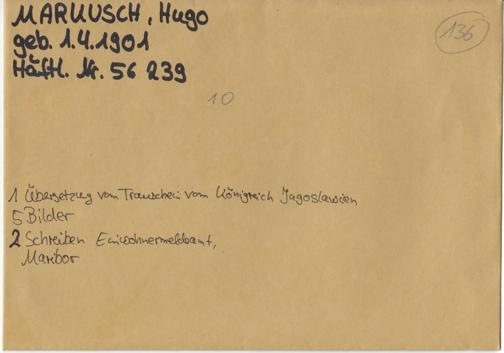 MARUUSCH, Hugo
geb. 1.4.1901
Häftl. Nr. 56 239
136
10
1 Übersetzung vom Trauschein vom Königreich Jagoslawien
5 Bilder
2 Schreiben Einwohnermeldeamt,
Maribor